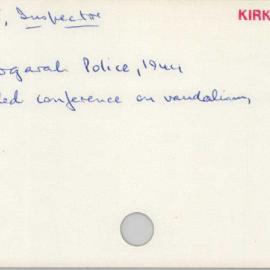 , Inspector
KIRK
ogarah Police, 1944
ed conference on vandalism,